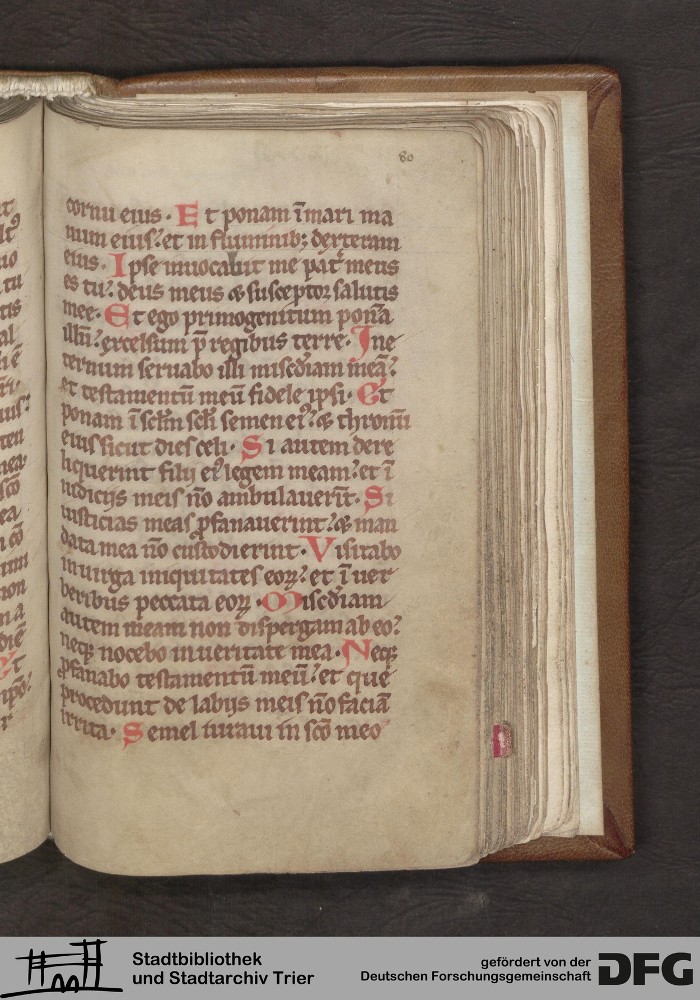 80
cornu eius. Et ponam ī mari ma
num eius: et in fluminib; dexteram
eius. Ipse inuocabit me pat̄ meus
es tu: deus meus & susceptor salutis
mee. Et ego primogenitum ponā
illū: excelsum p̄ regibus terre. In e
ternum seruabo illi mis̄c̄diam meā:
et testamentū meū fidele ipsi. Et
ponam ī sc̄lm sc̄li semen eiꝰ: & thronū
eius sicut dies celi. Si autem dere
liquerint filij eiꝰ legem meam: et ī
iudicijs meis nō ambulauerīt. Si
iusticias meas ꝓfanauerint: & man
data mea nō custodierint. Visitabo
in uirga iniquitates eoꝝ: et ī uer
beribus peccata eoꝝ. Mis̄c̄diam
autem meam non dispergam ab eo:
neqꝫ nocebo in ueritate mea. Neqꝫ
ꝓfanabo testamentū meū: et que
procedunt de labijs meis nō faciā
irrita. Semel iuraui in sc̄o meo
Stadtbibliothek
und Stadtarchiv Trier
gefördert von der
Deutschen Forschungsgemeinschaft
DFG